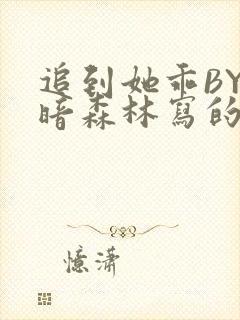 追到她乖BY
暗森林寫的
憶瀟